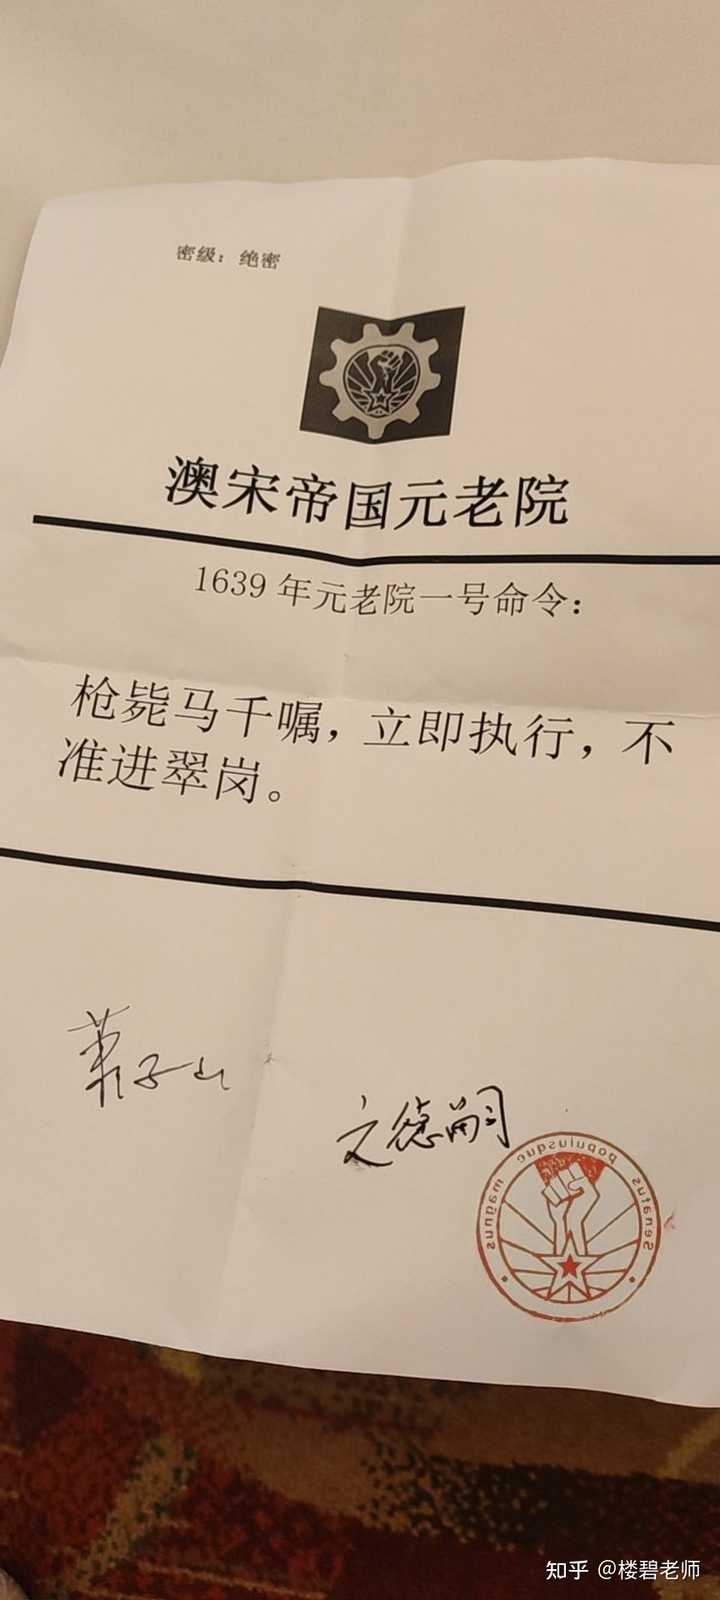 密级：绝密
澳宋帝国元老院
1639 年元老院一号命令：
枪毙马千嘱，立即执行，不
准进翠岗。
萧子山
文德嗣
Senatus populusque magnus
知乎 @楼碧老师